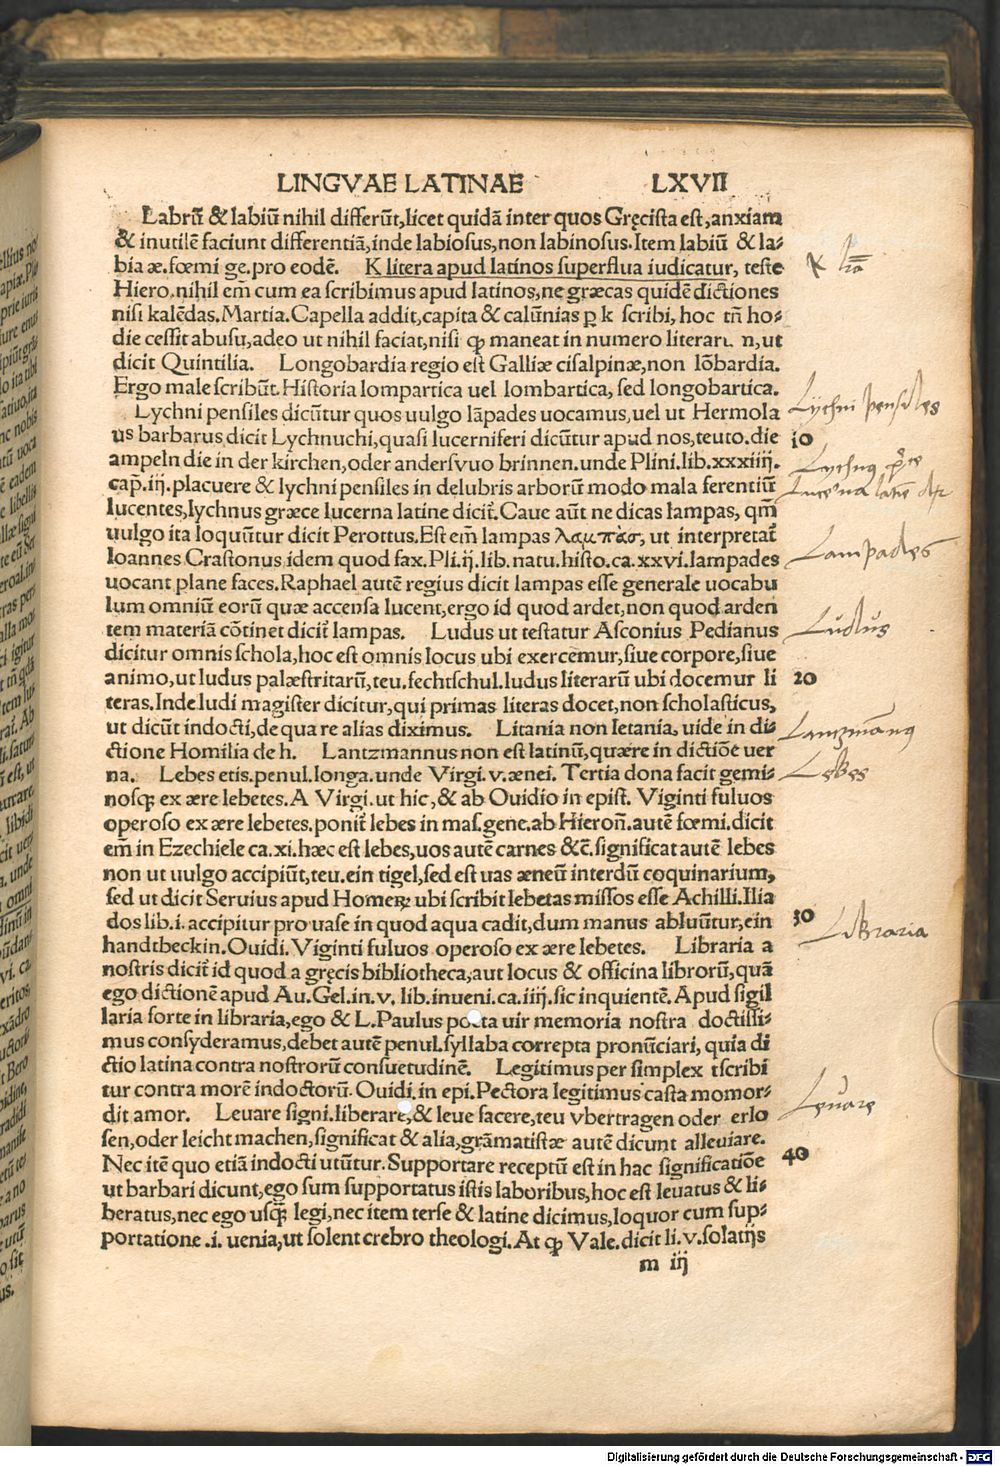 LINGVAE LATINAE LXVII
Labrū & labiū nihil differūt, licet quidā inter quos Gręcista est, anxiam
& inutilē faciunt differentiā, inde labiosus, non labinosus. Item labiū & la⸗
bia æ. fœmi ge. pro eodē. K litera apud latinos superflua iudicatur, teste
Hiero. nihil em̄ cum ea scribimus apud latinos, ne græcas quidē dictiones
nisi kalēdas. Martia. Capella addit, capita & calūnias ꝑ k scribi, hoc tn̄ ho⸗
die cessit abusu, adeo ut nihil faciat, nisi ꝙ maneat in numero literaru n, ut
dicit Quintilia. Longobardia regio est Galliæ cisalpinæ, non lōbardia.
Ergo male scribūt. Historia lompartica uel lombartica, sed longobartica.
Lychni pensiles dicūtur quos uulgo lāpades uocamus, uel ut Hermola
us barbarus dicit Lychnuchi, quasi lucerniferi dicūtur apud nos, teuto. die
10
ampeln die in der kirchen, oder andersvuo brinnen. unde Plini. lib. xxxiiij.
cap̄. iij. placuere & lychni pensiles in delubris arborū modo mala ferentiū
lucentes, lychnus græce lucerna latine dicit̄. Caue aūt ne dicas lampas, qm̄
uulgo ita loquūtur dicit Perottus. Est em̄ lampas λαμπὰσ, ut interpretat̄
Ioannes Crastonus idem quod fax. Pli. ij. lib. natu. histo. ca. xxvi. lampades
uocant plane faces. Raphael autē regius dicit lampas esse generale uocabu
lum omniū eorū quæ accensa lucent, ergo id quod ardet, non quod arden
tem materiā cōtinet dicit̄ lampas. Ludus ut testatur Asconius Pedianus
dicitur omnis schola, hoc est omnis locus ubi exercemur, siue corpore, siue
animo, ut ludus palæstritarū, teu. fechtschul. ludus literarū ubi docemur li
20
teras. Inde ludi magister dicitur, qui primas literas docet, non scholasticus,
ut dicūt indocti, de qua re alias diximus. Litania non letania, uide in di⸗
ctione Homilia de h. Lantzmannus non est latinū, quære in dictiōe uer
na. Lebes etis. penul. longa. unde Virgi. v. ænei. Tertia dona facit gemi⸗
nosqꝫ ex ære lebetes. A Virgi. ut hic, & ab Ouidio in epist. Viginti fuluos
operoso ex ære lebetes. ponit̄ lebes in mas. gene. ab Hieron̄. autē fœmi. dicit
em̄ in Ezechiele ca. xi. hæc est lebes, uos autē carnes &c̄. significat autē lebes
non ut uulgo accipiūt, teu. ein tigel, sed est uas æneū interdū coquinarium,
sed ut dicit Seruius apud Homeꝝ ubi scribit lebetas missos esse Achilli. Ilia
dos lib. i. accipitur pro uase in quod aqua cadit, dum manus abluūtur, ein
30
handtbeckin. Ouidi. Viginti fuluos operoso ex ære lebetes. Libraria a
nostris dicit̄ id quod a gręcis bibliotheca, aut locus & officina librorū, quā
ego dictionē apud Au. Gel. in. v. lib. inueni. ca. iiij. sic inquientē. Apud sigil
laria forte in libraria, ego & L. Paulus poeta uir memoria nostra doctissi⸗
mus consyderamus, debet autē penul. syllaba correpta pronūciari, quia di
ctio latina contra nostrorū consuetudinē. Legitimus per simplex t scribi
tur contra morē indoctorū. Ouidi. in epi. Pectora legitimus casta momor⸗
dit amor. Leuare signi. liberare, & leue facere, teu vbertragen oder erlo
sen, oder leicht machen, significat & alia, grāmatistæ autē dicunt alleuiare.
Nec itē quo etiā indocti utūtur. Supportare receptū est in hac significatiōe
40
ut barbari dicunt, ego sum supportatus istis laboribus, hoc est leuatus & li⸗
beratus, nec ego usꝗ̄ legi, nec item terse & latine dicimus, loquor cum sup⸗
portatione .i. uenia, ut solent crebro theologi. At ꝙ Vale. dicit li. v. solatijs
m iij
K lr̄a
Lychni pensiles
Lychnus
Lucerna
Lampades
Ludus
Lantzmānus
Lebes
Libraria
Leuare
Digitalisierung gefördert durch die Deutsche Forschungsgemeinschaft - DFG